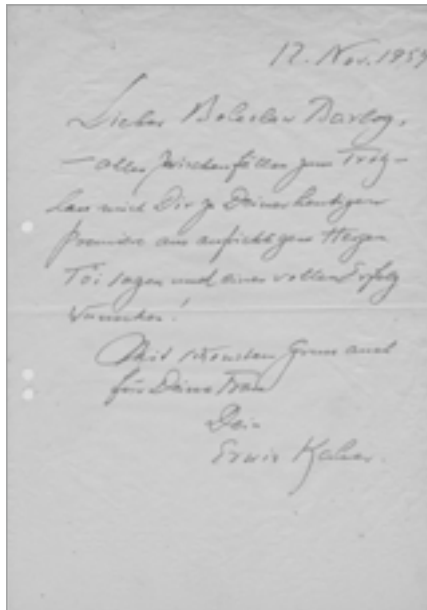 12. Nov. 1959
Lieber Boleslaw Barlog,
– allen Zwischenfällen zum Trotz –
lass mich Dir zu Deiner heutigen
Premiere aus aufrichtigem Herzen
Toi sagen und einen vollen Erfolg
wünschen!
Mit schönsten Gruss auch
für Deine Frau
Dein
Erwin Kalser.